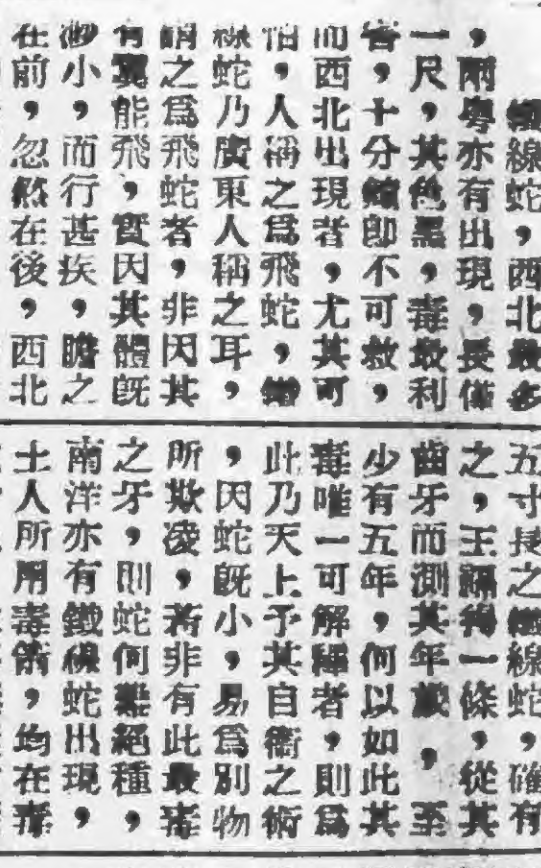 鐵線蛇,西北最多
,兩粵亦有出現,長僅
一尺,其色黑,毒最利
害,十分鐘即不可救,
而西北出現者,尤其可
怕,人稱之爲飛蛇,鐵
線蛇乃廣東人稱之耳,
謂之爲飛蛇者,非因其
有翼能飛,實因其體旣
渺小,而行甚疾,瞻之
在前,忽然在後,西北
五寸長之鐵線蛇,確有
之,王一條,從其
齒牙而測其年歲,至
少有五年,何以如此其
毒唯一可解釋者,則爲
此乃天上予其自衞之術
,因蛇旣小,易爲別物
所欺凌,若非有此最毒
之牙,則蛇何難絕種,
南洋亦有鐵線蛇出現,
土人所用毒箭,均在毒